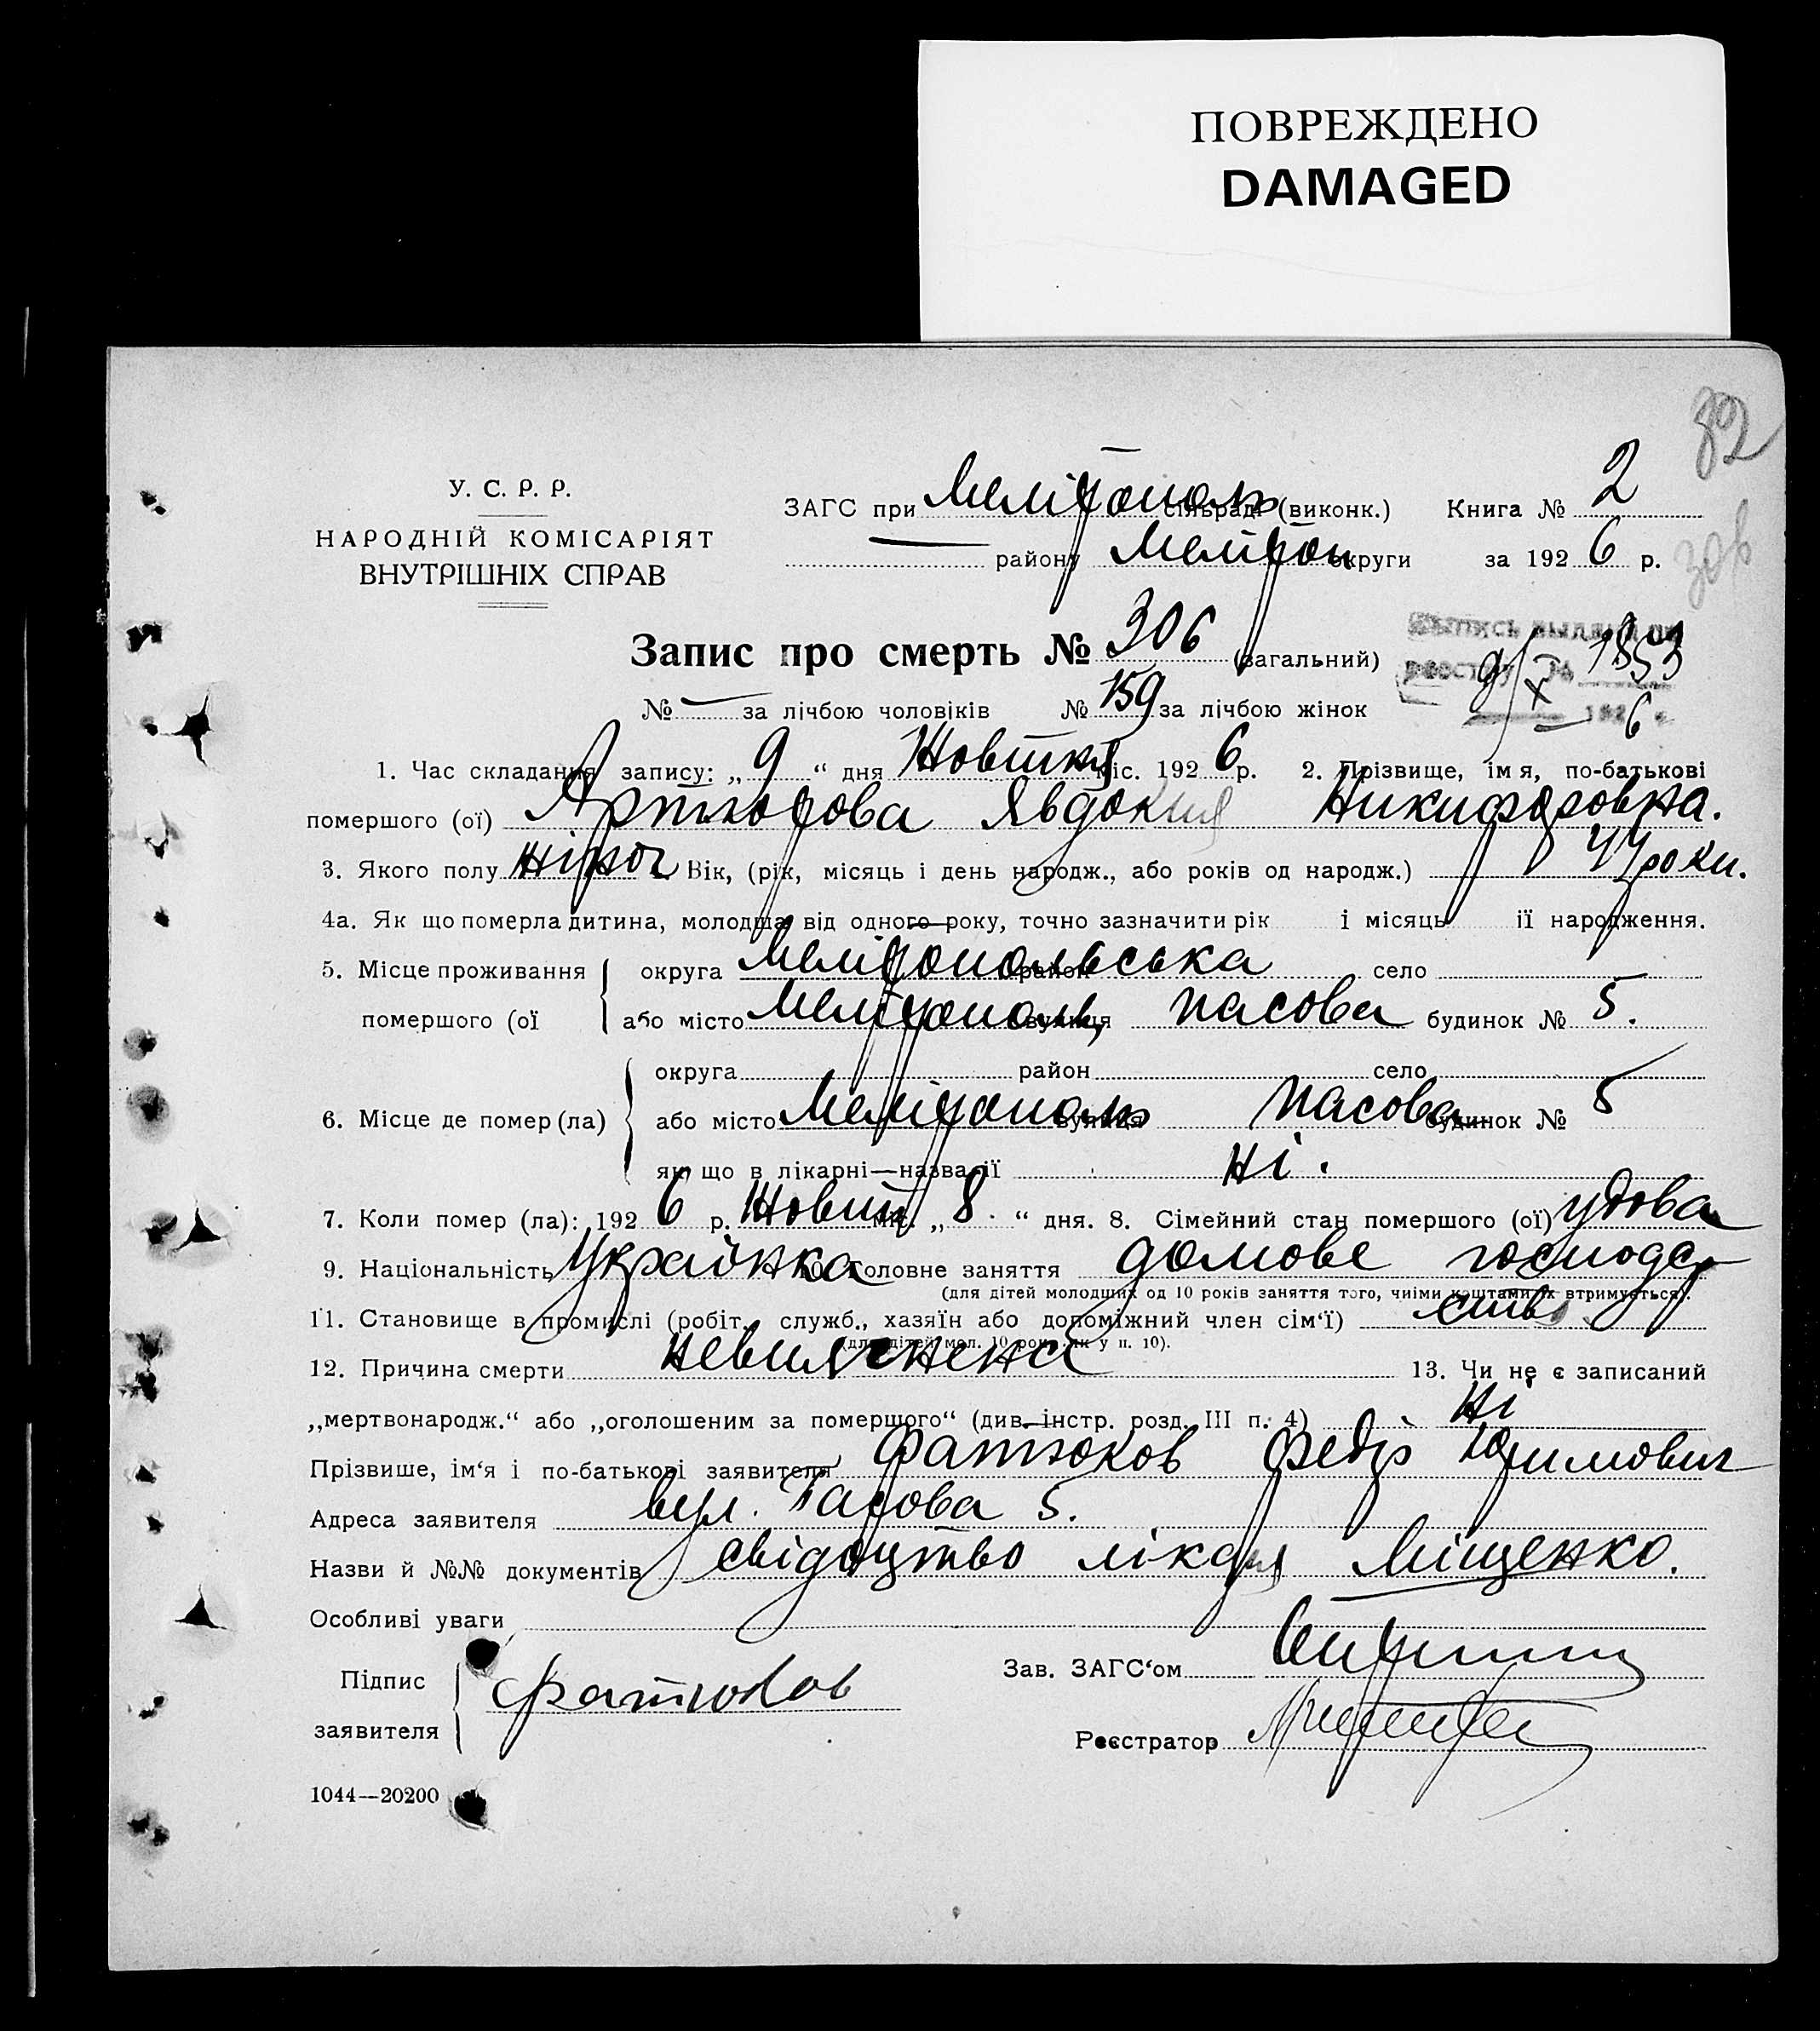 ПОВРЕЖДЕНО
DAMAGED
82
У. С. Р. Р.
НАРОДНІЙ КОМІСАРІЯТ
ВНУТРІШНІХ СПРАВ
ЗАГС при Мелітополь сільраді (виконк.) Книга № 2
району Мелітоп округи за 1926 р.
306
Запис про смерть № 306 (загальний)
Выпись выдана по
реестру № 1853
9/X 1926 г.
№ — за лічбою чоловіків № 159 за лічбою жінок
1. Час складання запису: „ 9 “ дня Жовтня міс. 1926 р. 2. Прізвище, імя, по-батькові
помершого (ої) Артюхова Явдокия Никифоровна.
3. Якого полу жіноч Вік, (рік, місяць і день народж., або років од народж.) 44 роки.
4а. Як що померла дитина, молодша від одного року, точно зазначити рік і місяць ії народження.
5. Місце проживання округа Мелітопольська район село
помершого (ої або місто Мелітополь, вулиця Пасова будинок № 5.
округа район село
6. Місце де помер (ла) або місто Мелітополь вулиця Пасова будинок № 5
як що в лікарні—назва ії ні.
7. Коли помер (ла): 1926 р. Жовт міс. „ 8 “ дня. 8. Сімейний стан помершого (ої) удова
9. Національність Українка 10. Головне заняття домове господар
(для дітей молодших од 10 років заняття того, чиїми коштами їх втримується).
11. Становище в промислі (робіт., служб., хазяїн або допоміжний член сім‘ї) ство
(для дітей мол. 10 рок. як у п. 10).
12. Причина смерти невияснена 13. Чи не є записаний
„мертвонародж.“ або „оголошеним за помершого“ (див. інстр. розд. III п. 4) Ні
Прізвише, ім‘я і по-батькові заявителя Фатюков Федір Юхимович
Адреса заявителя вул. Пасова 5.
Назви й №№ документів свідоцтво лікаря Міщенко.
Особливі уваги
Підпис
заявителя Фатюков
Зав. ЗАГС‘ом
Реєстратор
1044—20200